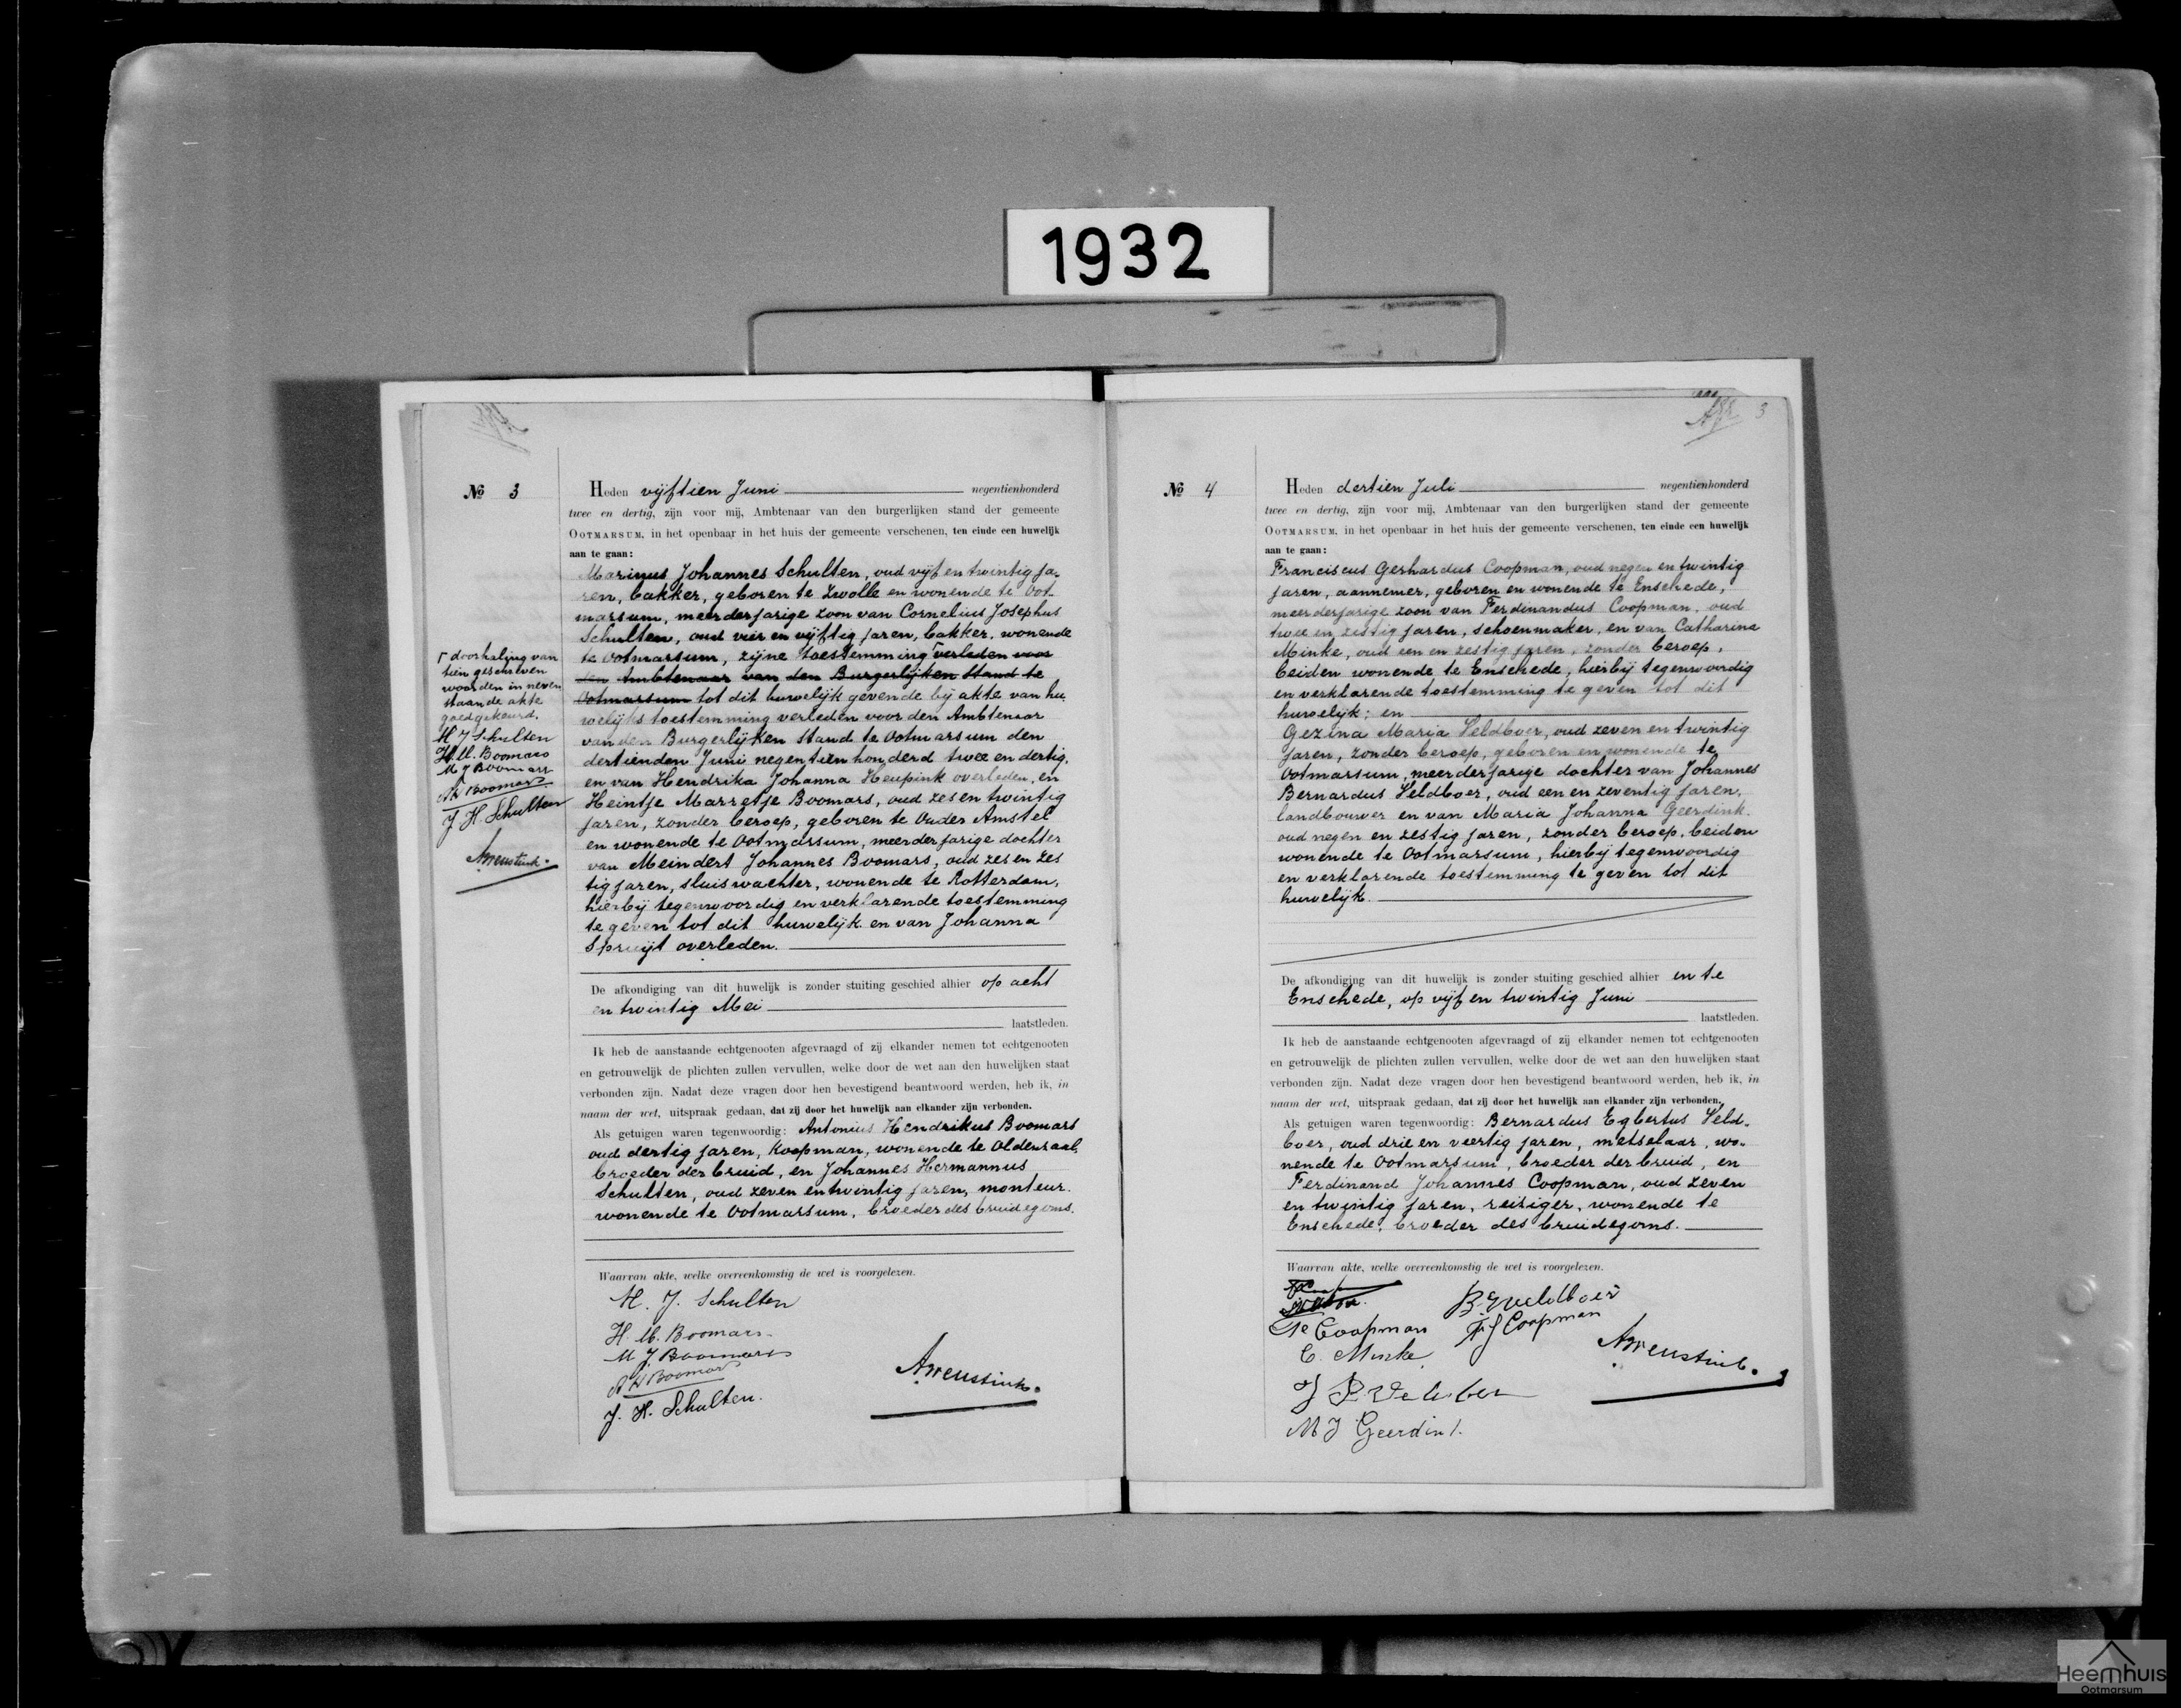 1932
No 3
Heden vijftien Juni negentienhonderd
twee en dertig, zijn voor mij, Ambtenaar van den burgerlijken stand der gemeente
OOTMARSUM, in het openbaar in het huis der gemeente verschenen, ten einde een huwelijk
aan te gaan:
Marinus Johannes Schulten, oud vijf en twintig ja-
ren, bakker, geboren te Zwolle en wonende te Oot-
marsum, meerderjarige zoon van Cornelius Josephus
Schulten, oud vier en vijftig jaren, bakker, wonende
te Ootmarsum, zijne toestemming verleden voor
den Ambtenaar van den Burgerlijken Stand te
Ootmarsum tot dit huwelijk gevende bij akte van hu
welijks toestemming verleden voor den Ambtenaar
van den Burgerlijken Stand te Ootmarsum den
dertienden Juni negentienhonderd twee en dertig,
en van Hendrika Johanna Heupink overleden, en
Heintje Marretje Boomars, oud zes en twintig
jaren, zonder beroep, geboren te Ouder Amstel
en wonende te Ootmarsum, meerderjarige dochter
van Meindert Johannes Boomars, oud zes en zes
tig jaren, sluiswachter, wonende te Rotterdam,
hierbij tegenwoordig en verklarende toestemming
te geven tot dit huwelijk en van Johanna
Spruijt overleden.
Γ doorhaling van
tien geschreven
woorden in neven
staande akte
goedgekeurd.
M J Schulten
H. M. Boomars
M J Boomars
A H Boomars
J. H. Schulten
De afkondiging van dit huwelijk is zonder stuiting geschied alhier op acht
en twintig Mei
laatstleden.
Ik heb de aanstaande echtgenooten afgevraagd of zij elkander nemen tot echtgenooten
en getrouwelijk de plichten zullen vervullen, welke door de wet aan den huwelijken staat
verbonden zijn. Nadat deze vragen door hen bevestigend beantwoord werden, heb ik, in
naam der wet, uitspraak gedaan, dat zij door het huwelijk aan elkander zijn verbonden.
Als getuigen waren tegenwoordig: Antonius Hendrikus Boomars
oud dertig jaren, koopman, wonende te Oldenzaal,
broeder der bruid, en Johannes Hermannus
Schulten, oud zeven en twintig jaren, monteur.
wonende te Ootmarsum, broeder des bruidegoms.
Waarvan akte, welke overeenkomstig de wet is voorgelezen.
M. J. Schulten
H. M. Boomars
M J Boomars
A H Boomars
J. H. Schulten.
3
No 4
Heden dertien Juli negentienhonderd
twee en dertig, zijn voor mij, Ambtenaar van den burgerlijken stand der gemeente
OOTMARSUM, in het openbaar in het huis der gemeente verschenen, ten einde een huwelijk
aan te gaan:
Franciscus Gerhardus Coopman, oud negen en twintig
jaren, aannemer, geboren en wonende te Enschede,
meerderjarige zoon van Ferdinandus Coopman, oud
twee en zestig jaren, schoenmaker, en van Catharina
Minke, oud een en zestig jaren, zonder beroep,
beiden wonende te Enschede, hierbij tegenwoordig
en verklarende toestemming te geven tot dit
huwelijk; en
Gezina Maria Veldboer, oud zeven en twintig
jaren, zonder beroep, geboren en wonende te
Ootmarsum, meerderjarige dochter van Johannes
Bernardus Veldboer, oud een en zeventig jaren,
landbouwer en van Maria Johanna Geerdink.
oud negen en zestig jaren, zonder beroep, beiden
wonende te Ootmarsum, hierbij tegenwoordig
en verklarende toestemming te geven tot dit
huwelijk.
De afkondiging van dit huwelijk is zonder stuiting geschied alhier en te
Enschede, op vijf en twintig Juni
laatstleden.
Ik heb de aanstaande echtgenooten afgevraagd of zij elkander nemen tot echtgenooten
en getrouwelijk de plichten zullen vervullen, welke door de wet aan den huwelijken staat
verbonden zijn. Nadat deze vragen door hen bevestigend beantwoord werden, heb ik, in
naam der wet, uitspraak gedaan, dat zij door het huwelijk aan elkander zijn verbonden.
Als getuigen waren tegenwoordig: Bernardus Egbertus Veld-
boer, oud drie en veertig jaren, metselaar, wo-
nende te Ootmarsum, broeder der bruid, en
Ferdinand Johannes Coopman, oud zeven
en twintig jaren, reiziger, wonende te
Enschede, broeder des bruidegoms.
Waarvan akte, welke overeenkomstig de wet is voorgelezen.
B. E Veldboer
Coopman
F J Coopman
C. Minke
M J Geerdink
Heemhuis
Ootmarsum